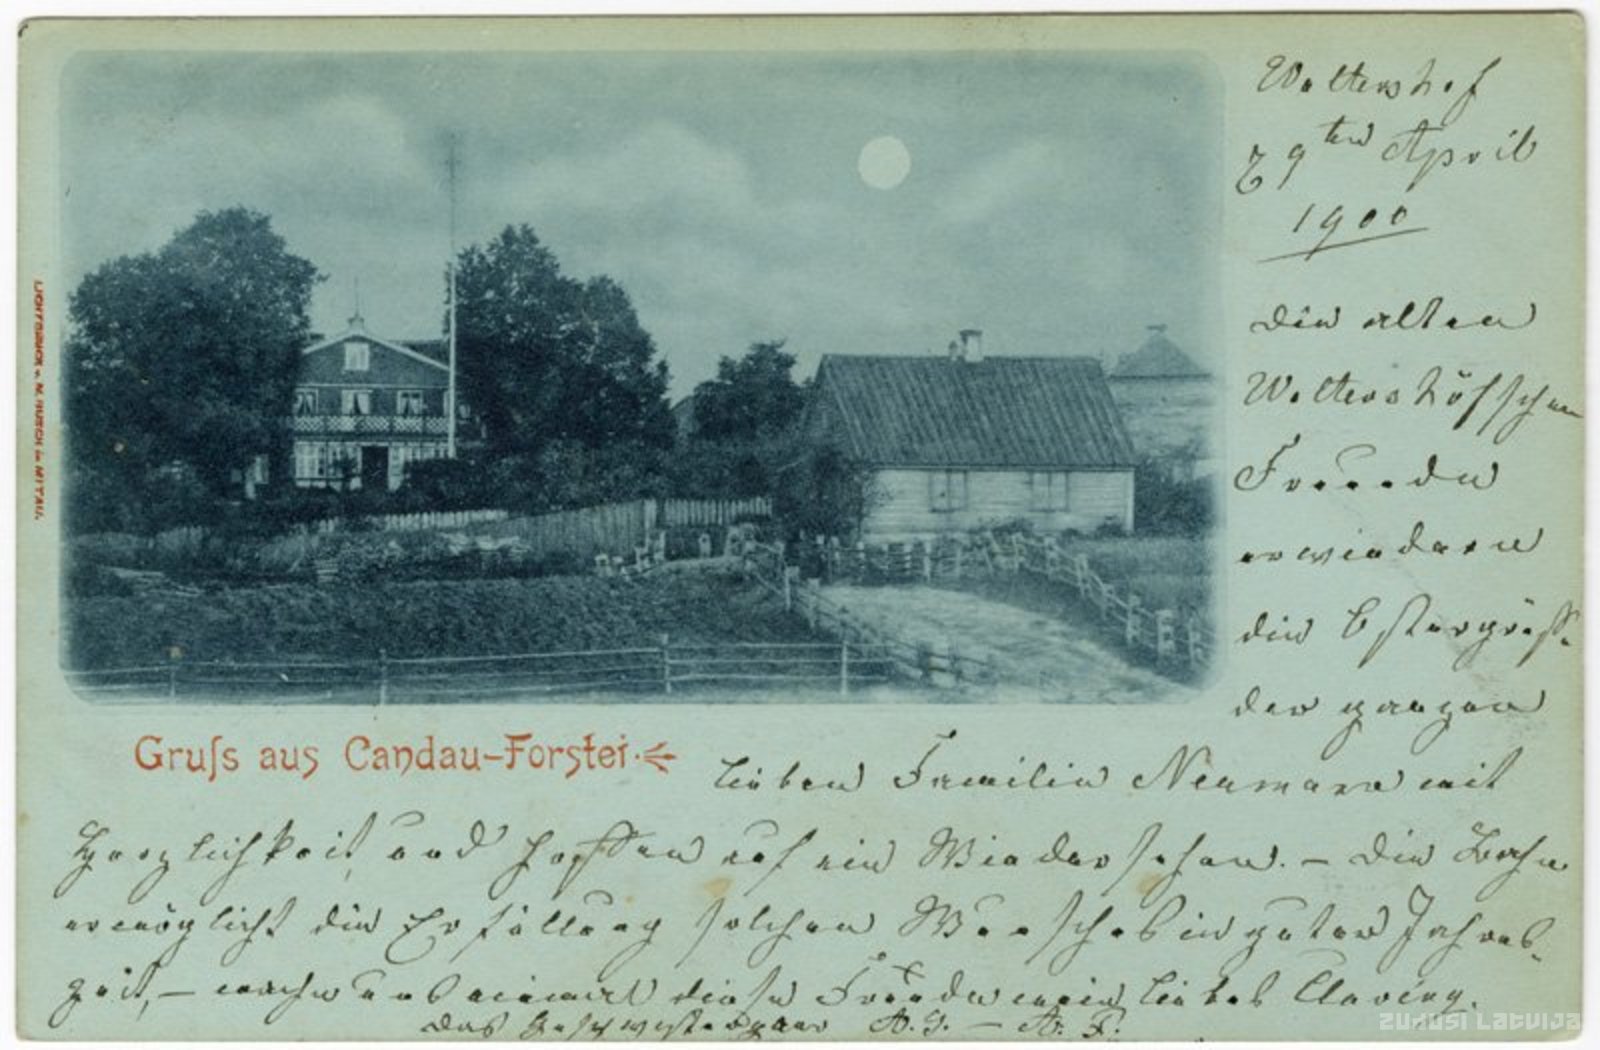 Waltershof
29ten April
1900
Die alten
Waltershöfschen
Freunde
erwiedern
die Ostergrüsse
der ganzen
Gruſs aus Candau-Forstei.
lieben Familie Neumann mit
Herzlichkeit, und hoffen auf ein Wiedersehen. – Die Bahn
ermöglicht die Erfüllung solchen Wunsches in guter Jahres-
zeit, – mache uns einmal diese Freude mein liebes
Das Geschwisterpaar A. –
LICHTDRUCK v. IN MITAU.
ZUDUSI LATVIJA